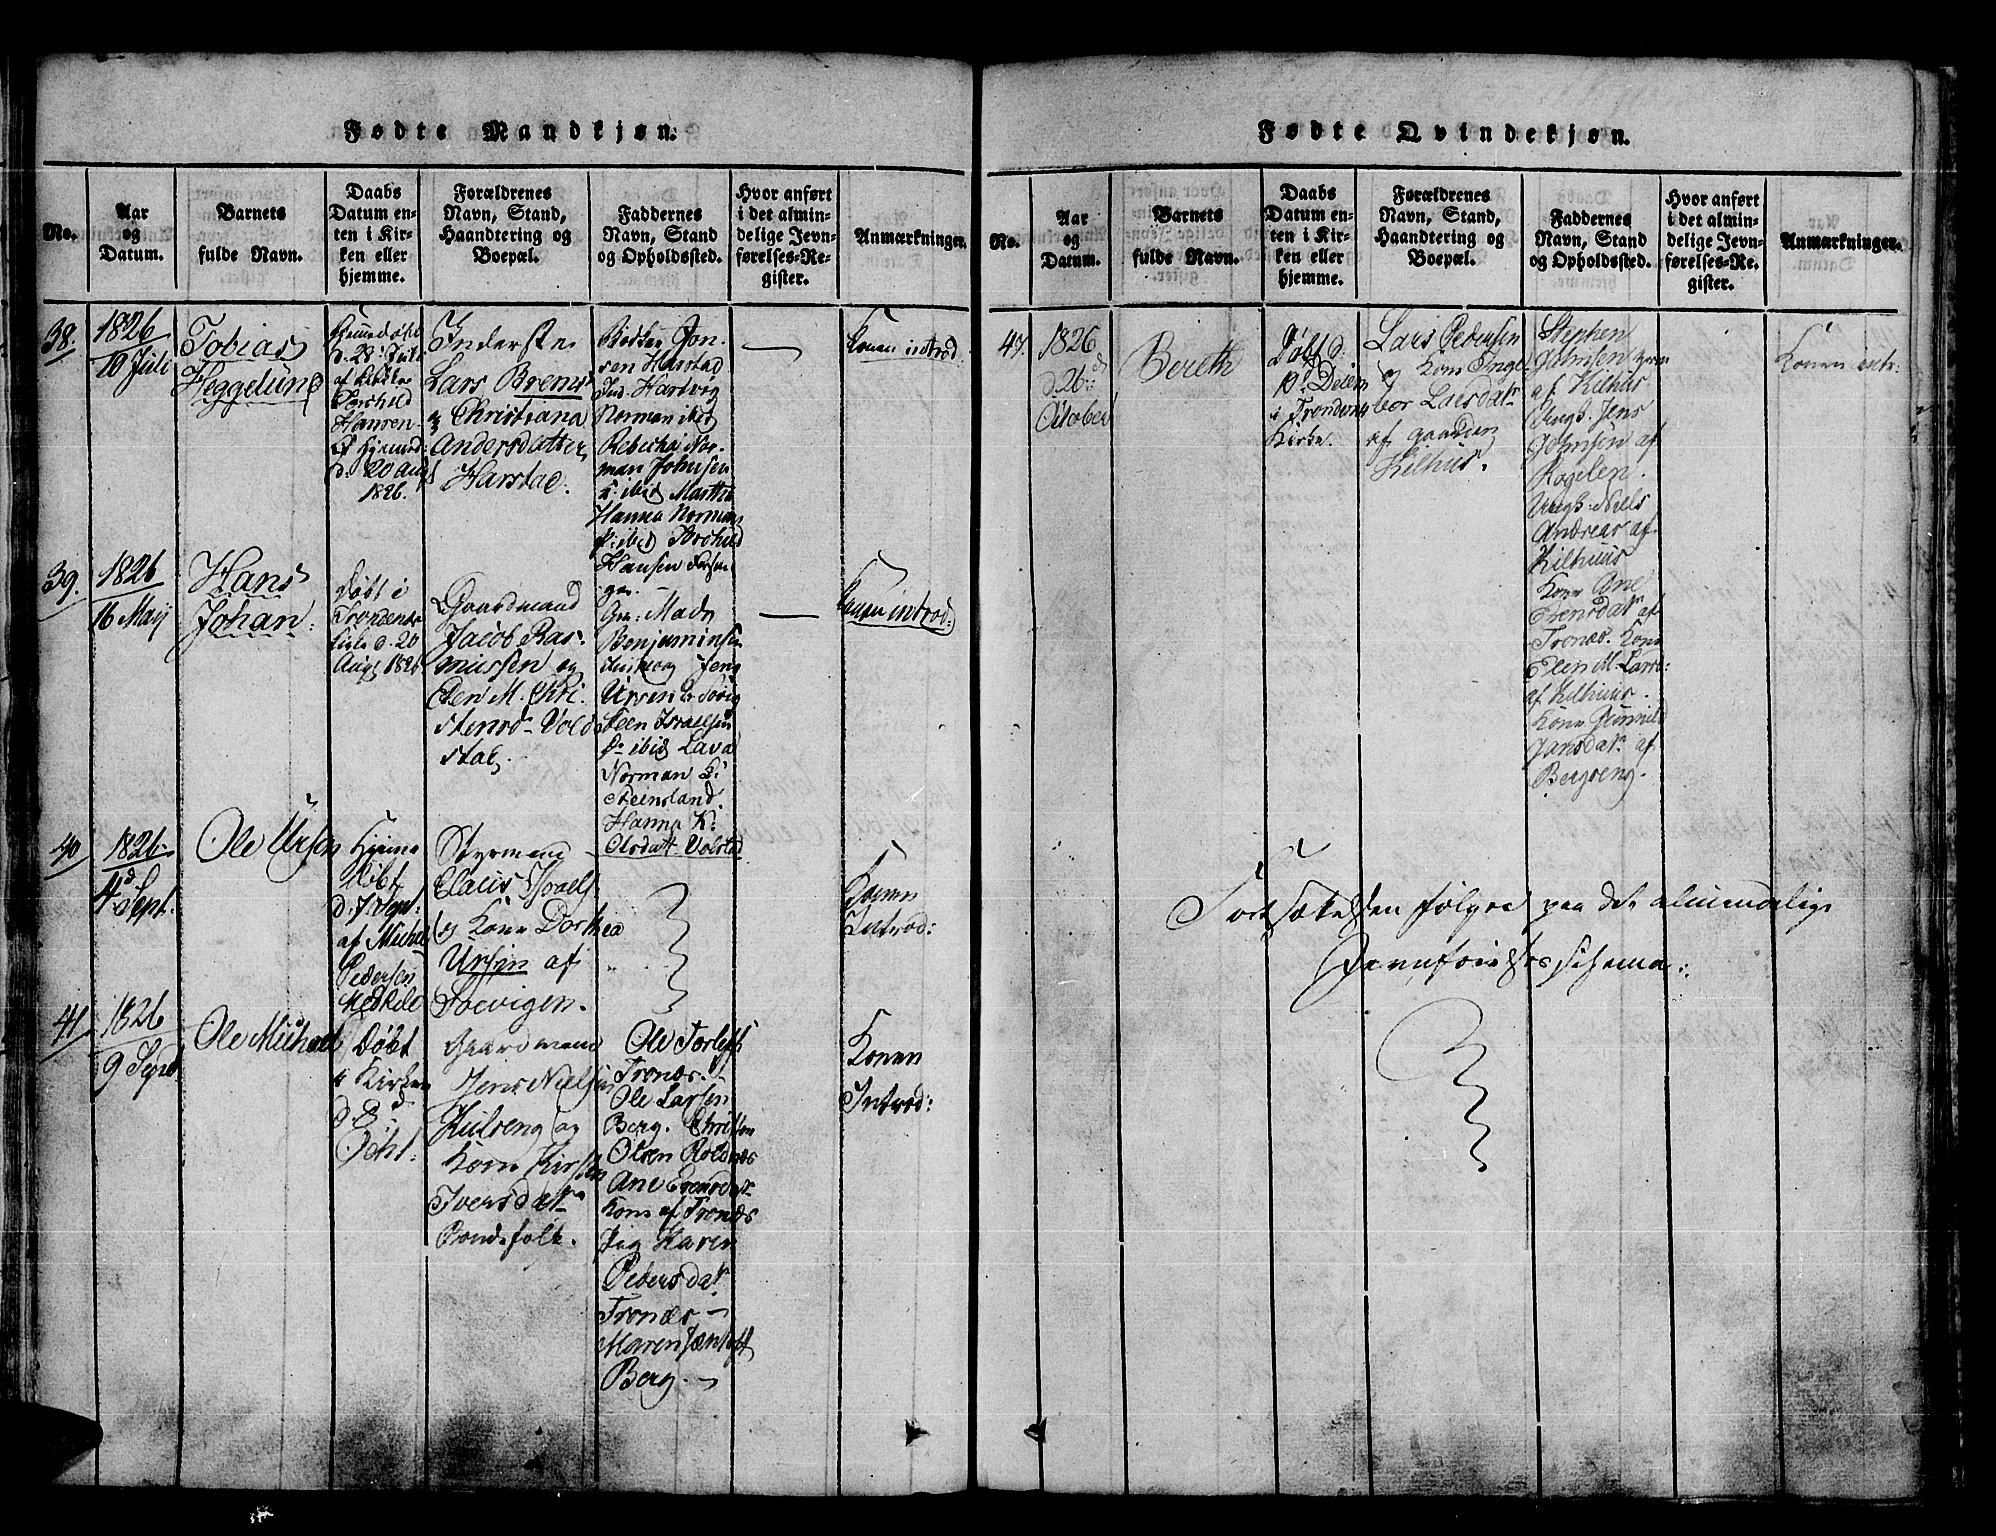 Fødte Mandkjøn.
No.
Aar
og
Datum.
Barnets
fulde Navn.
Daabs
Datum en-
ten i Kir-
ken eller
hjemme.
Forældrenes
Navn, Stand,
Haandtering og
Boepæl.
Faddernes
Navn, Stand
og Opholdssted.
Hvor anført
i det almin-
delige Jevn-
førelses-Re-
gister.
Anmærkninger.
38.
1826
10 Juli
Tobias
Heggelund
Hjemmedøbt
d. 23 Juli
af
Hansen
Hjemmed:
d. 20 Aug
1826.
Inderste
Lars Brems
Christiana
Andersdatter
Harstad.
Jon-
sen Harstad
Ind. Hartvig
Norman ibid
Rebecka Nor-
man Johnsen
K: ibid Martha
Hanna Norman
P: ibid
Hansen
Konen introd.
39.
1826
16 Maij
Hans
Johan:
Døbt i
Trondenæs
Kirke d. 20
Aug. 1826
Gaardmand
Jacob Ras-
mussen og
Elen M. Chri-
stensd. Vold
stad.
Gm: Mads
Benjaminsen
Jens
Ursin
Steen Israelsen
Do ibid Lava
Norman K:
Steinsland.
Hanna K:
Olsdatt. Volstad
Konen introd:
40
1826
4d Sept.
Ole Ursin
Hjemme
døbt
d. 7 Sept.
af Michel
Pedersen
Medkile
Styrmand
Claus Israels
og Kone Dorthea
Ursin af
Soevigen.
Konen
Introd:
41.
1826
9 Sept
Ole Michael
Døbt
i Kirken
d. 8d
Octt.
Gaardmand
Jens Nielsen
Kulseng og
Kone Kirsten
Iversdatr
Bondefolk.
Ole Torlefs
Tronæs.
Ole Larsen
Berg. Christen
Olsen Roldnæs
Ane Erensdatr
Kone af Tronæs
Pig Karen
Pedersdatr
Tronæs
Maren
Berg.
Fødte Qvindekjøn.
No.
Aar
og
Datum.
Barnets
fulde Navn.
Daabs
Datum en-
ten i Kir-
ken eller
hjemme.
Forældrenes
Navn, Stand,
Haandtering og
Boepæl.
Faddernes
Navn, Stand
og Opholdssted.
Hvor anført
i det almin-
delige Jevn-
førelses-Re-
gister.
Anmærkninger.
47.
1826
d. 26d
October
Bereth
Døbt d:
10d Decem
i Trondenæs
Kirke.
Lars Pedersen
og Kone Inge-
bor Larsdatr
af gaarden
Kilhus.
Stephen
Johnsen
af Kilhus
Ungk. Jens
Johnsen af
Rogelen.
Ungk. Niels
Andreas af
Kilhuus
Kone Ane
Erensdatr af
Tronæs. Kone
Elen M. Larsd:
af Kilhuus.
Kone Gunnild
Jansdatr af
Bergseng.
Konen intr:
Fortsættelsen følger paa det almindelige
Jevnførelsesschema: